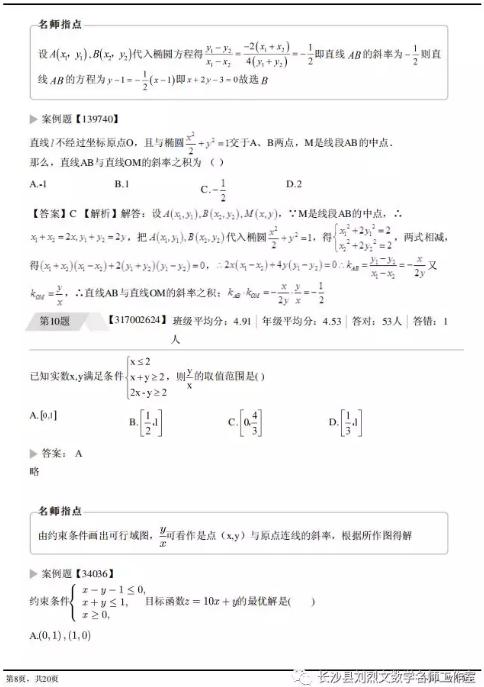 名师指点
设 A(x₁, y₁), B(x₂, y₂)代入椭圆方程得 (y₁−y₂)/(x₁−x₂) = −2(x₁+x₂)/4(y₁+y₂) = −1/2 即直线 AB 的斜率为 −1/2 则直
线 AB 的方程为 y−1=−1/2(x−1)即 x+2y−3=0故选 B
案例题【139740】
直线 l 不经过坐标原点O，且与椭圆 x²/2 + y² =1交于A、B两点，M是线段AB的中点．
那么，直线AB与直线OM的斜率之积为（ ）
A.-1 B.1 C.−1/2 D.2
【答案】C 【解析】解答：设 A(x₁,y₁), B(x₂,y₂), M(x,y)，∵M是线段AB的中点，∴
x₁+x₂=2x, y₁+y₂=2y，把 A(x₁,y₁), B(x₂,y₂)代入椭圆 x²/2 + y² =1，得{x₁²+2y₁²=2 x₂²+2y₂²=2，两式相减，
得(x₁+x₂)(x₁−x₂)+2(y₁+y₂)(y₁−y₂)=0，∴2x(x₁−x₂)+4y(y₁−y₂)=0∴k_AB = (y₁−y₂)/(x₁−x₂) = −x/2y 又
k_OM = y/x，∴直线AB与直线OM的斜率之积：k_AB·k_OM = −x/2y · y/x = −1/2
第10题 【317002624】 班级平均分：4.91 | 年级平均分：4.53 | 答对：53人 | 答错：1
人
已知实数x,y满足条件{x≤2 x+y≥2 2x-y≥2，则 y/x 的取值范围是( )
A.[0,1] B.[1/2,1] C.[0,4/3] D.[1/3,1]
答案： A
略
名师指点
由约束条件画出可行域图，y/x 可看作是点（x,y）与原点连线的斜率，根据所作图得解
案例题【34036】
约束条件{x−y−1≤0, x+y≤1, x≥0, 目标函数z=10x+y的最优解是( )
A.(0,1),(1,0)
第8页，共20页
长沙县刘烈文数学名师工作室